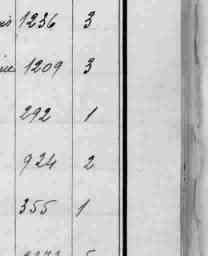 1236 3
1209 3
292 1
924 2
355 1